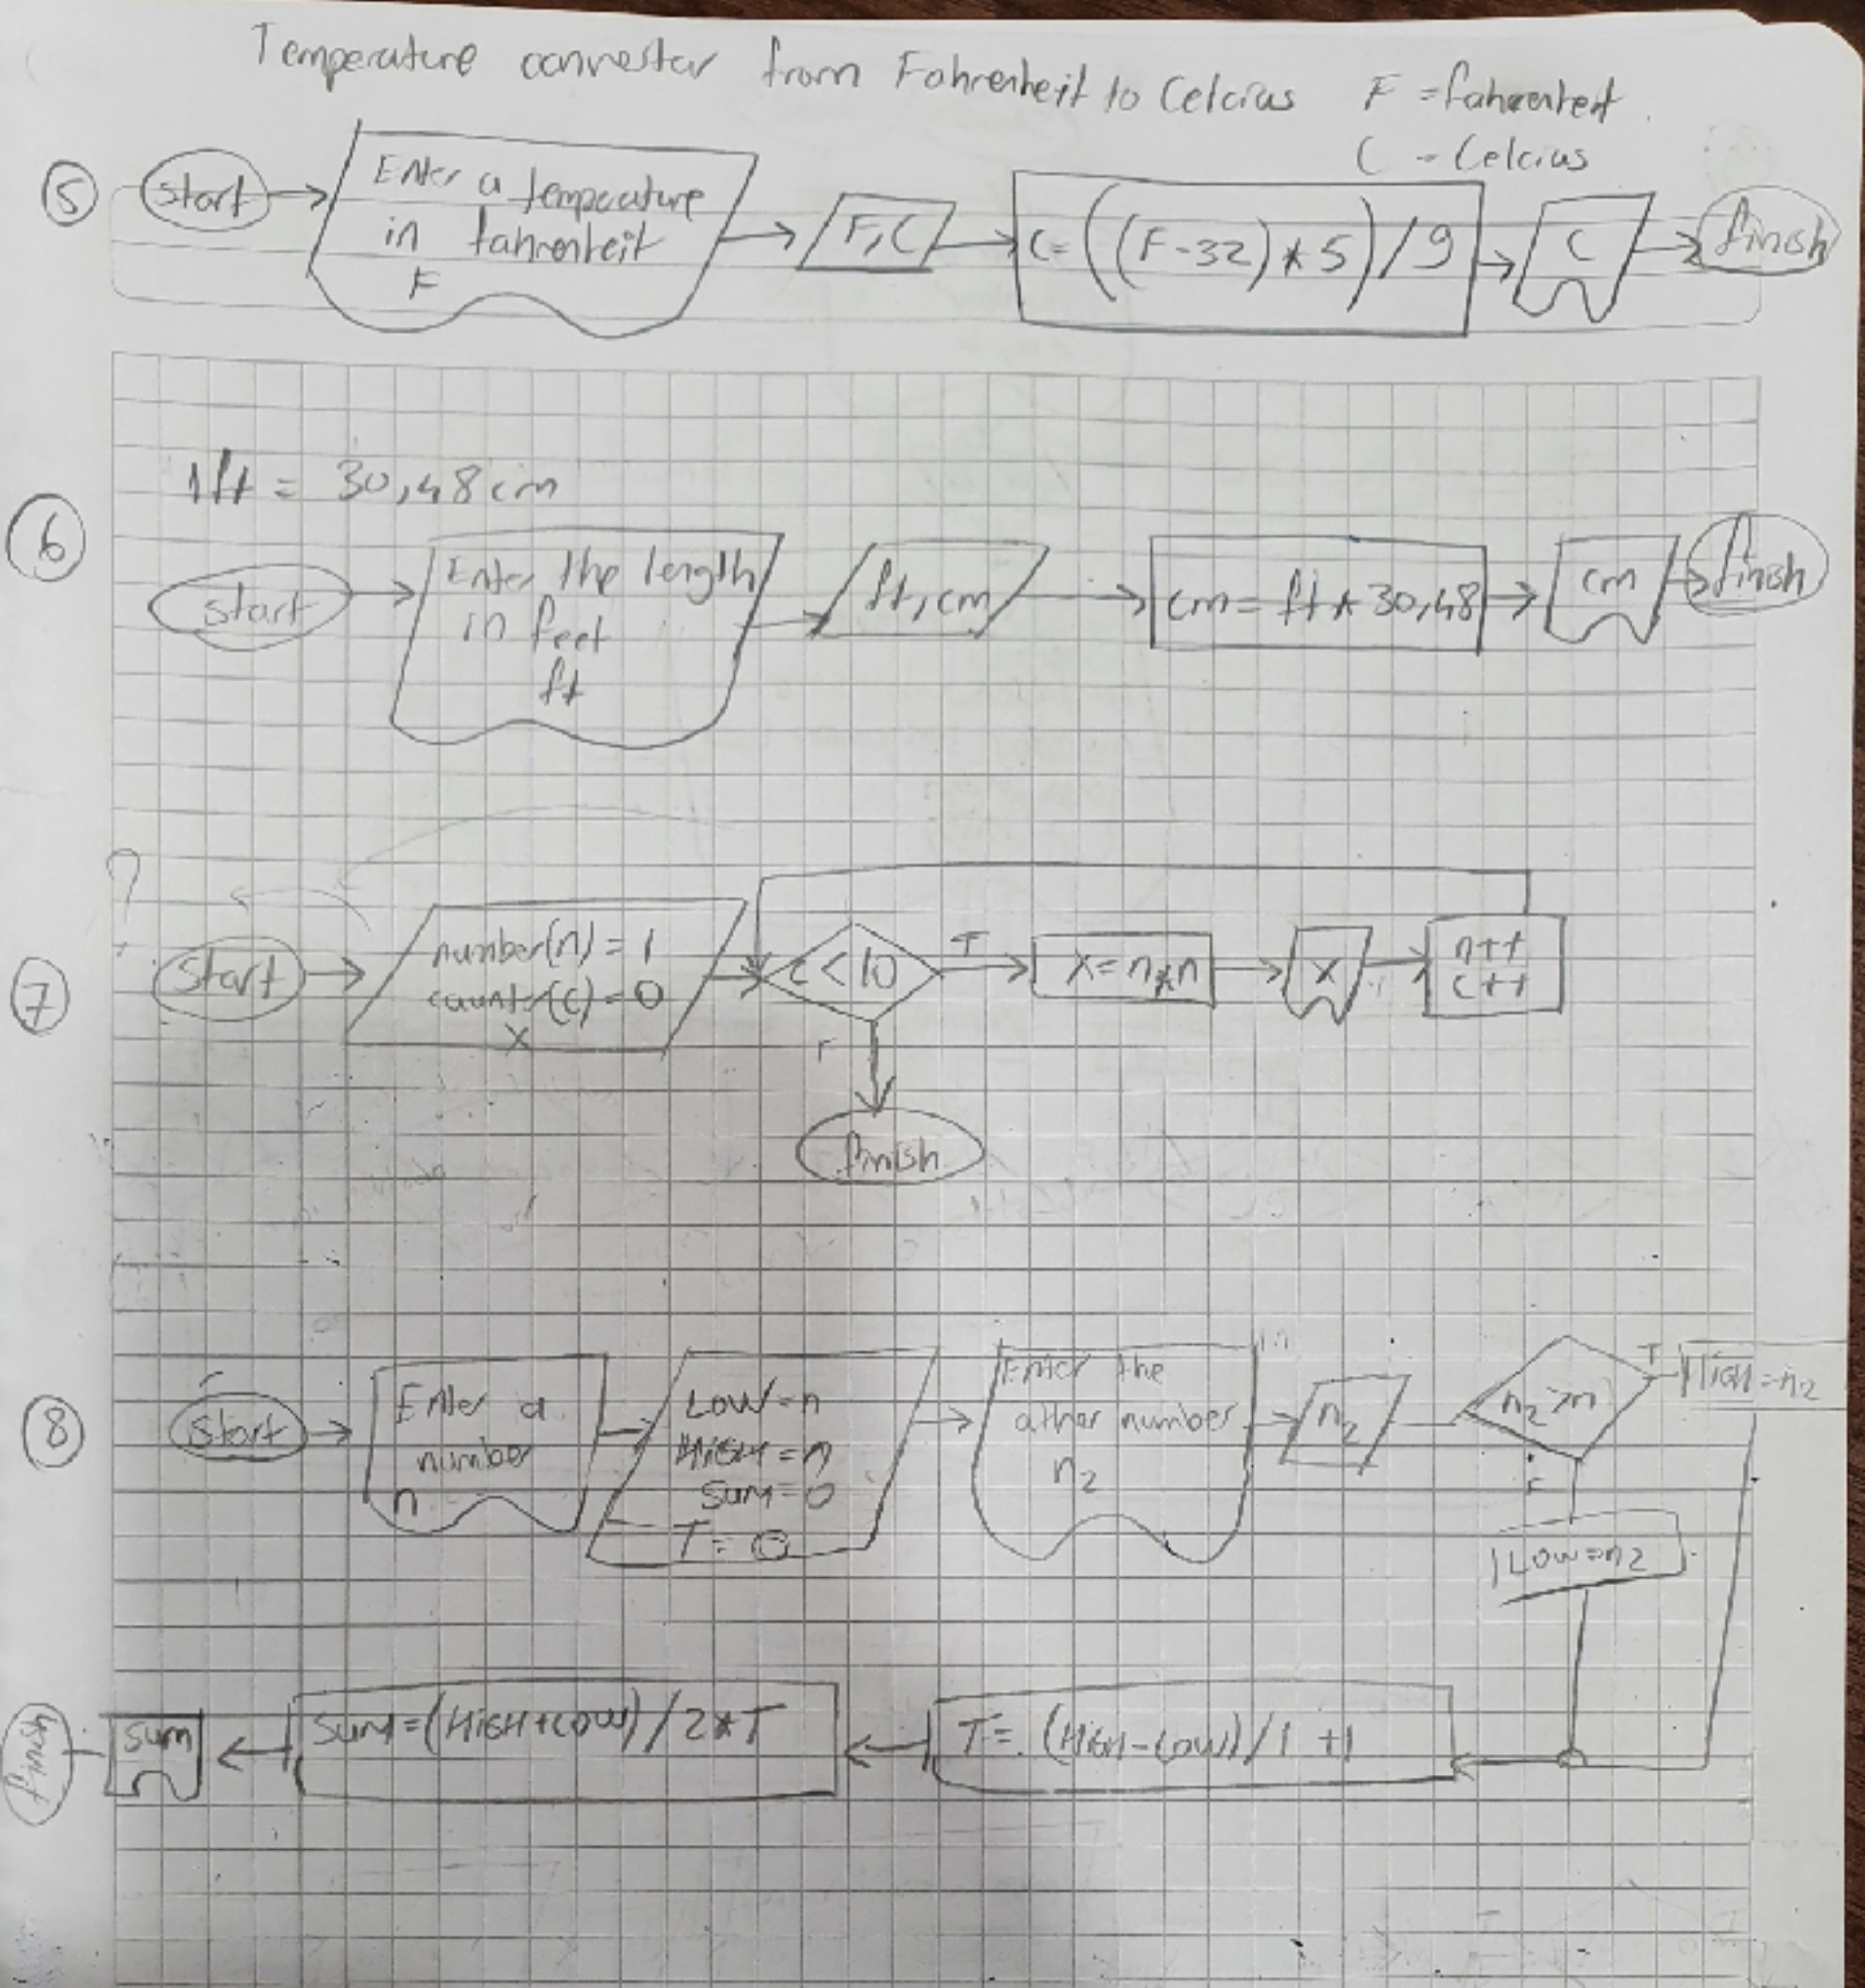 Temperature convertor from Fahrenheit to Celcius F = fahrenheit.
C - Celcius
5
start
Enter a temperature
in fahrenheit
F
F, C
C = ((F-32) * 5) / 9
C
finish
1ft = 30,48 cm
6
start
Enter the length
in feet
ft
ft, cm
cm = ft * 30,48
cm
finish
?
7
start
number(n) = 1
counter(c) = 0
X
c < 10
T
X = n*n
X
n++
c++
F
finish
8
start
Enter a
number
n
LOW = n
HIGH = n
SUM = 0
T = 0
Enter the
other number
n2
n2
n2 > n
T
HIGH = n2
F
LOW = n2
T = (HIGH - LOW) / 1 + 1
SUM = (HIGH + LOW) / 2 * T
sum
finish